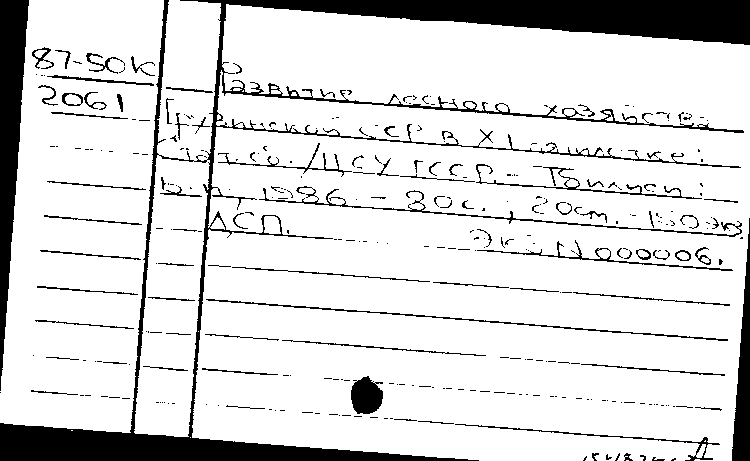 87-50К Развитие лесного хозяйства
2061 Грузинской ССР в XI пятилетке:
Стат. сб. / ЦСУ ГССР. - Тбилиси:
Б.и., 1986. - 80 с.; 20 см. - 150 экз
ДСП. Экз. N 000006.